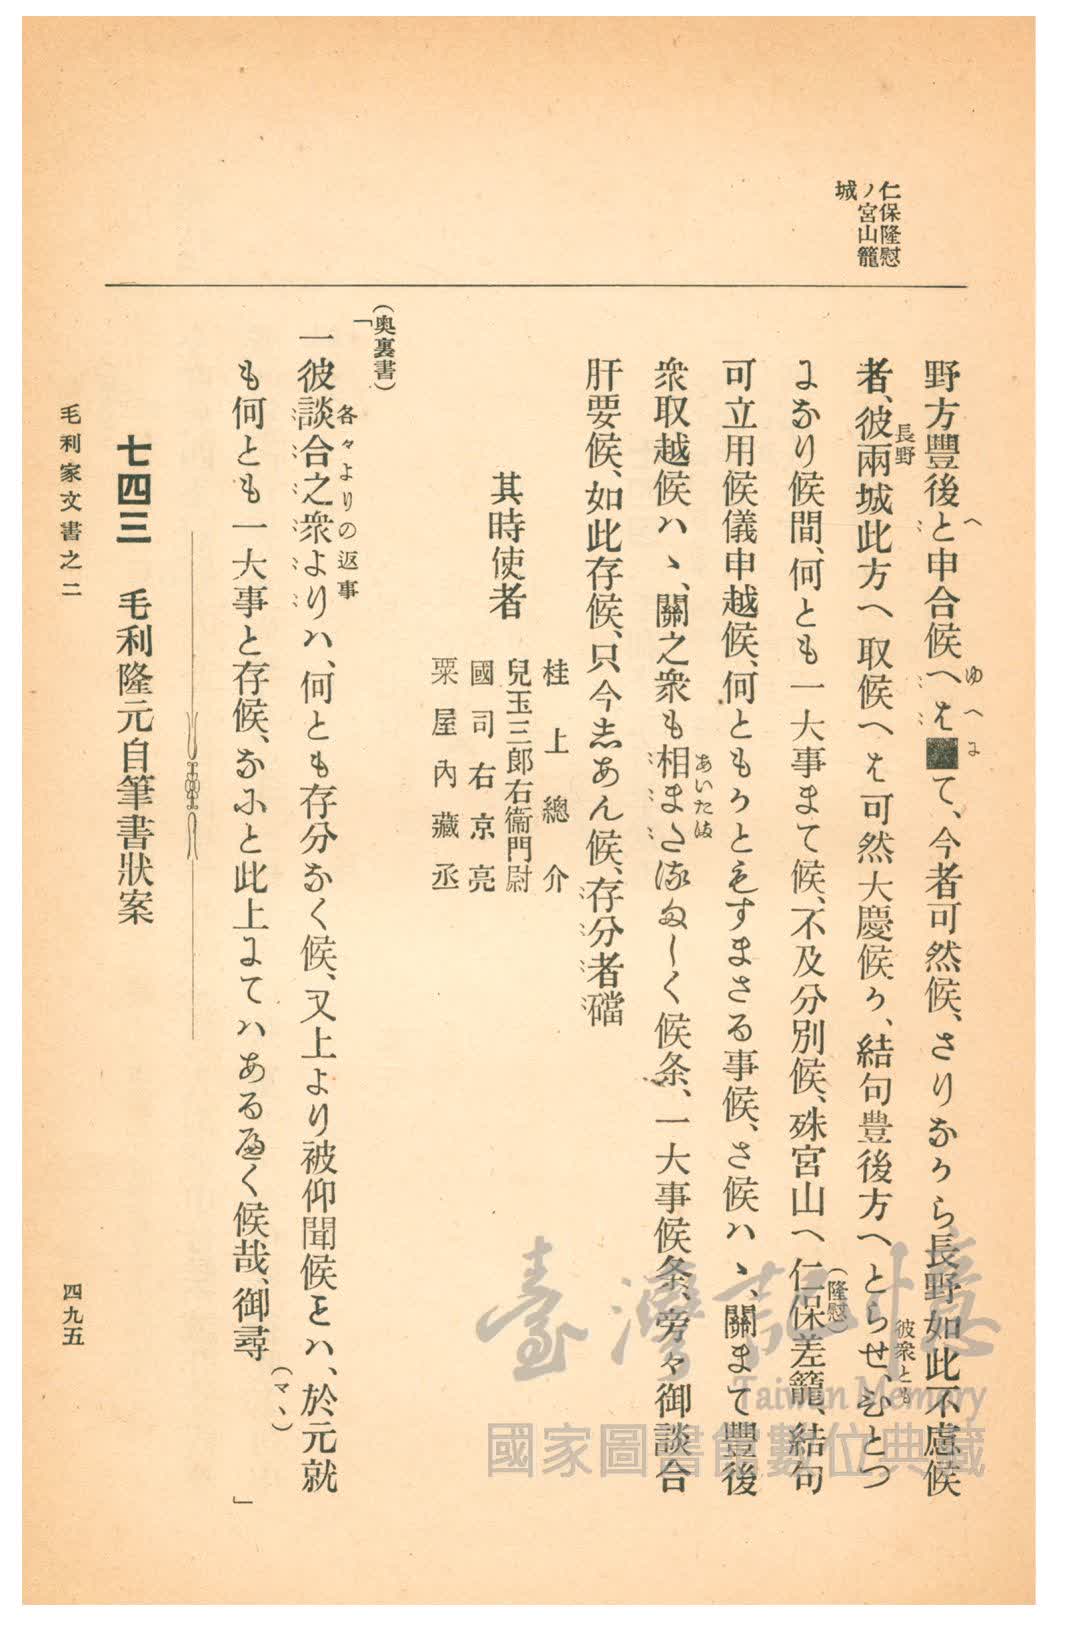 仁保隆慰
ノ宮山籠
城
野方豐後と申合候へは■て、今者可然候、さりなから長野如此不慮候
へ
ゆへに
者、彼兩城此方へ取候へは可然大慶候か、結句豊後方へとらせ、むとつ
長野
彼衆とも
になり候間、何とも一大事まて候、不及分別候、殊宮山へ仁保差籠、結句
(隆慰)
可立用候儀申越候、何ともかともすまさる事候、さ候ハヽ、關まて豐後
衆取越候ハヽ、關之衆も相またぬましく候条、一大事候条、旁々御談合
あいたほ
肝要候、如此存候、只今しあん候、存分者礑
其時使者
桂上總介
兒玉三郎右衞門尉
國司右京亮
粟屋內藏丞
(奥裏書)
「
一彼談合之衆よりハ、何とも存分なく候、又上より被仰聞候とハ、於元就
各々よりの返事
も何とも一大事と存候、なにと此上にてハあるへく候哉、御尋
(マヽ)
」
七四三 毛利隆元自筆書狀案
毛利家文書之二
四九五
臺灣記憶
Taiwan Memory
國家圖書館數位典藏